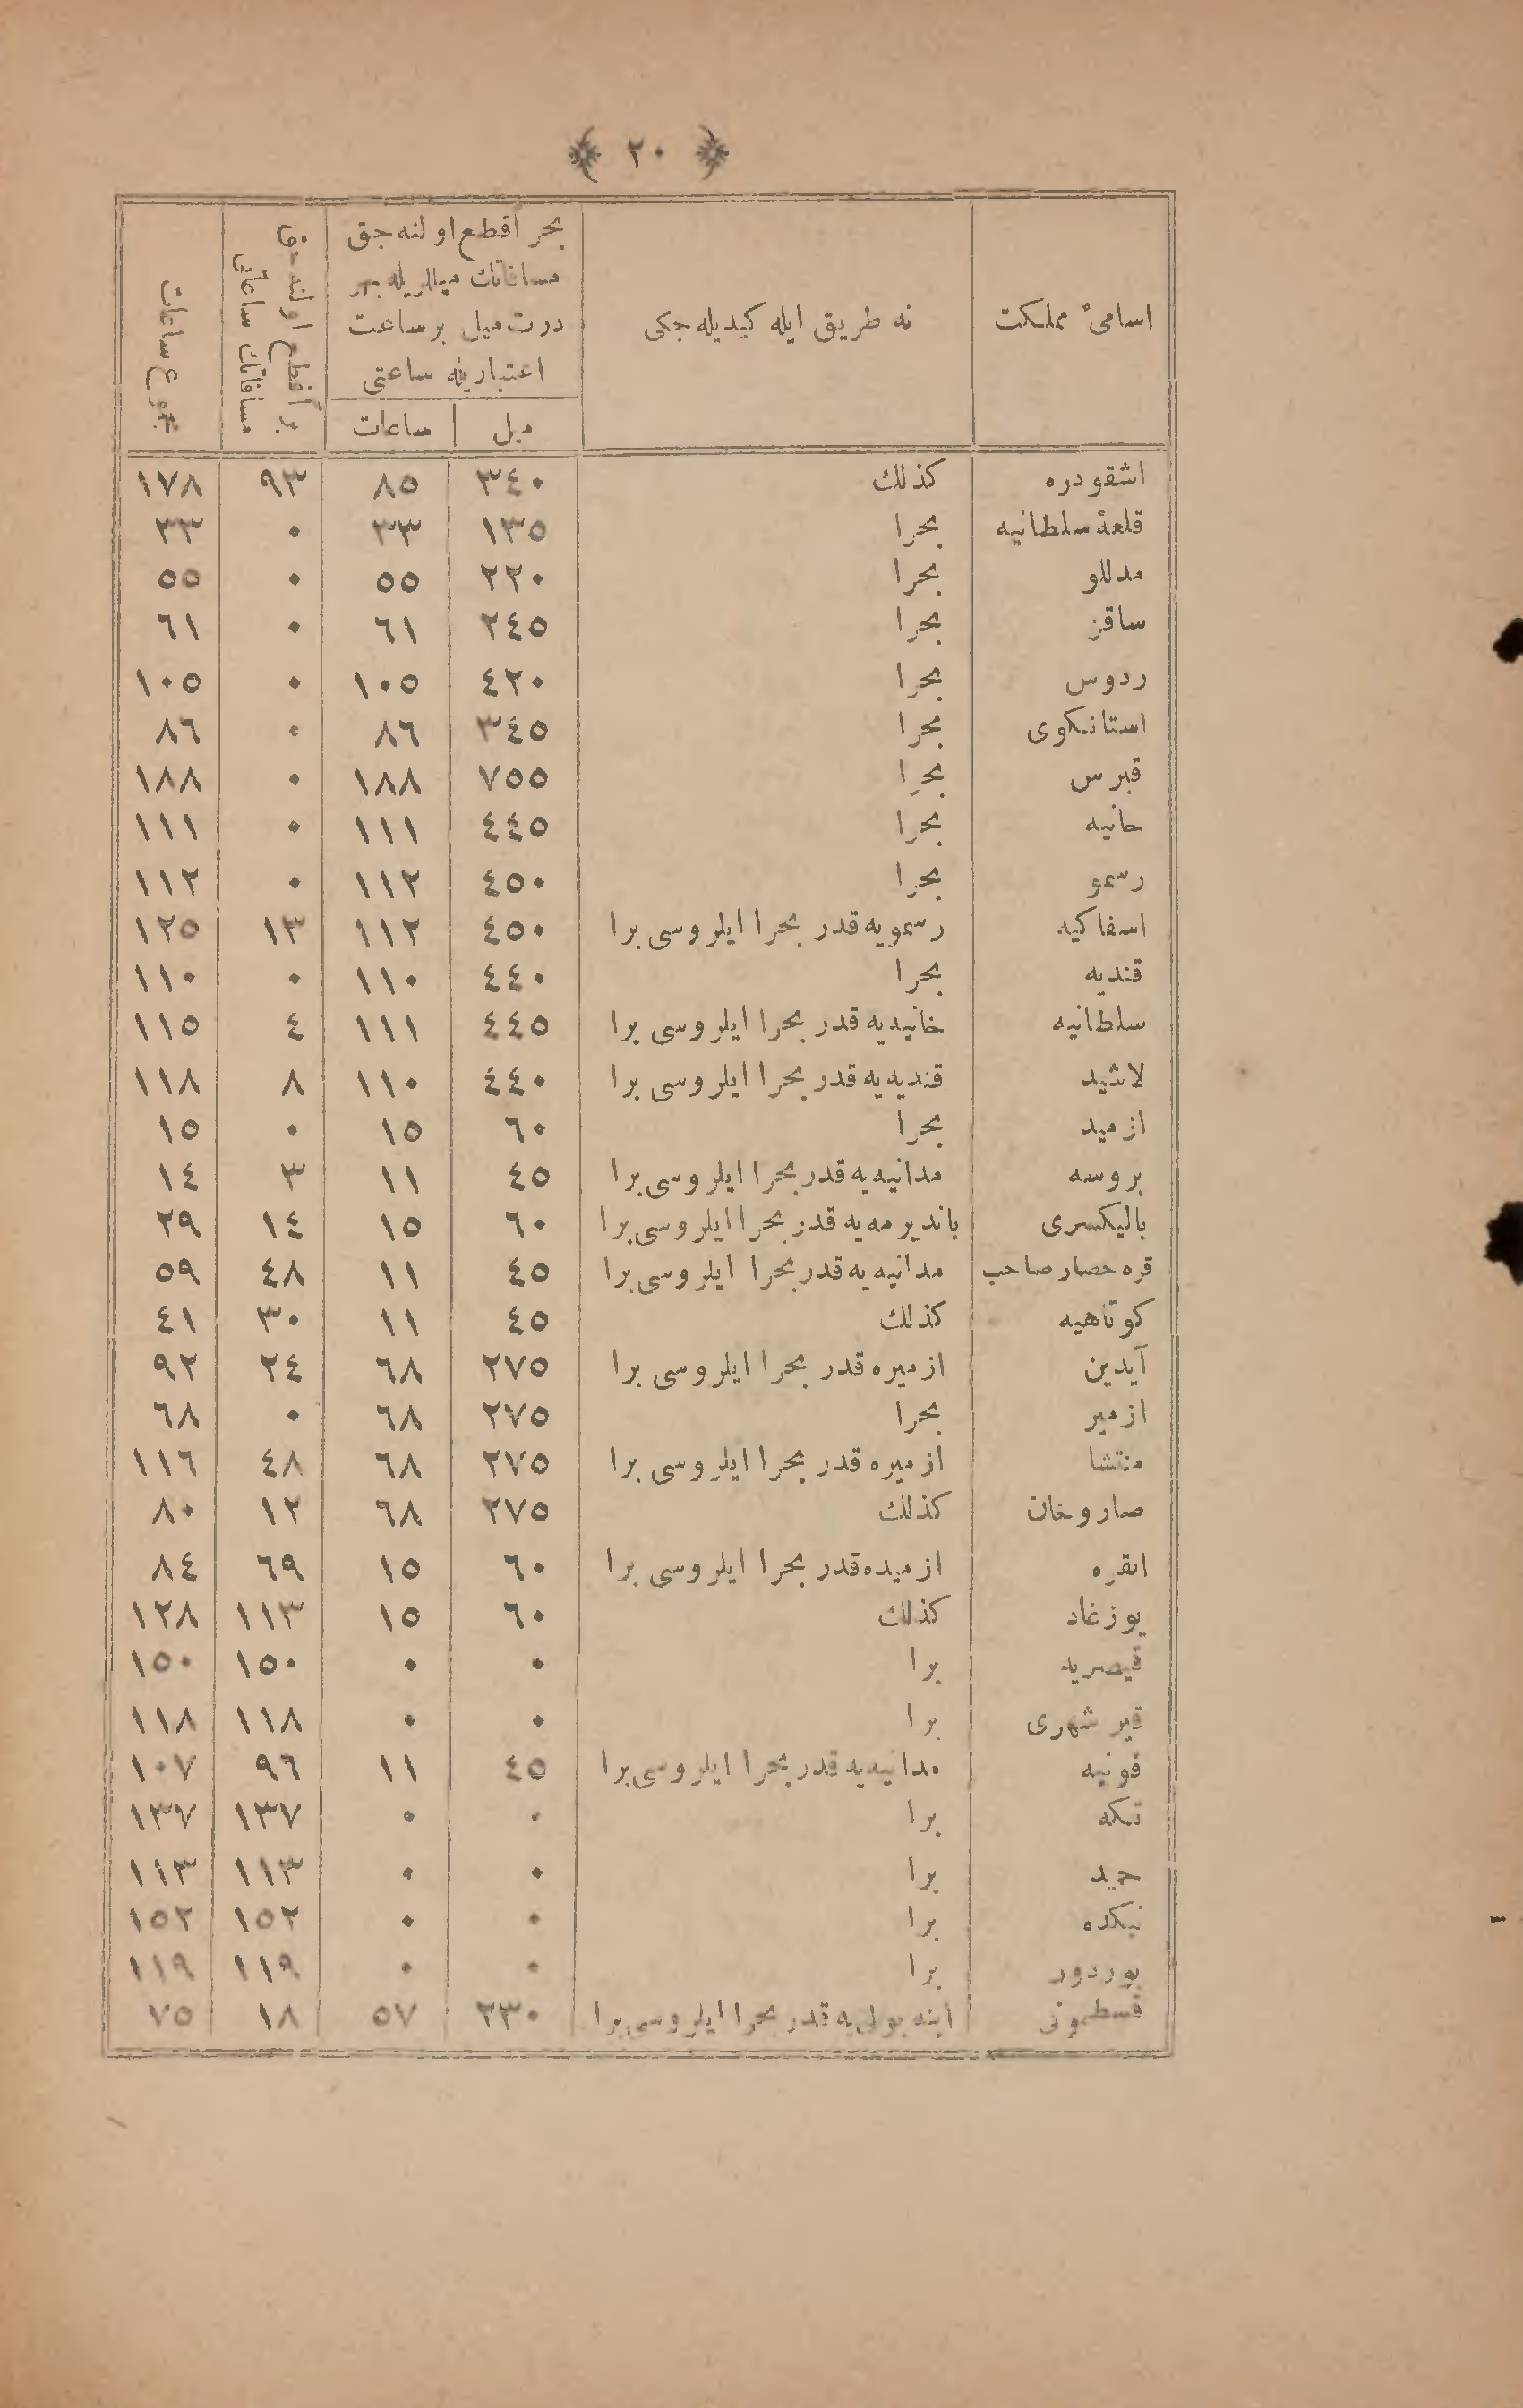 ﴿ ٢٠ ﴾
اسامیٔ مملكت نه طريق ايله كيديله جكی بحراً قطع اولنه جق مسافاتك ميللريله بهر درت ميل بر ساعت اعتباريله ساعتی براً قطع اولنه جق مسافاتك ساعاتی مجموع ساعات
ميل ساعات
اشقودره كذلك ٣٤٠ ٨٥ ٩٣ ١٧٨
قلعهٔ سلطانيه بحرا ١٣٥ ٣٣ ٠ ٣٣
مدللو بحرا ٢٢٠ ٥٥ ٠ ٥٥
ساقز بحرا ٢٤٥ ٦١ ٠ ٦١
ردوس بحرا ٤٢٠ ١٠٥ ٠ ١٠٥
استانكوی بحرا ٣٤٥ ٨٦ ٠ ٨٦
قبرس بحرا ٧٥٥ ١٨٨ ٠ ١٨٨
حانيه بحرا ٤٤٥ ١١١ ٠ ١١١
رسمو بحرا ٤٥٠ ١١٢ ٠ ١١٢
اسفاكيه رسمويه قدر بحرا ايلروسی برا ٤٥٠ ١١٢ ١٣ ١٢٥
قنديه بحرا ٤٤٠ ١١٠ ٠ ١١٠
سلطانيه خانيه‌يه قدر بحرا ايلروسی برا ٤٤٥ ١١١ ٤ ١١٥
لاشيد قنديه‌يه قدر بحرا ايلروسی برا ٤٤٠ ١١٠ ٨ ١١٨
ازميد بحرا ٦٠ ١٥ ٠ ١٥
بروسه مدانيه‌يه قدر بحرا ايلروسی برا ٤٥ ١١ ٣ ١٤
باليكسری بانديرمه‌يه قدر بحرا ايلروسی برا ٦٠ ١٥ ١٤ ٢٩
قره حصار صاحب مدانيه‌يه قدر بحرا ايلروسی برا ٤٥ ١١ ٤٨ ٥٩
كوتاهيه كذلك ٤٥ ١١ ٣٠ ٤١
آيدين ازميره قدر بحرا ايلروسی برا ٢٧٥ ٦٨ ٢٤ ٩٢
ازمير بحرا ٢٧٥ ٦٨ ٠ ٦٨
منتشا ازميره قدر بحرا ايلروسی برا ٢٧٥ ٦٨ ٤٨ ١١٦
صاروخان كذلك ٢٧٥ ٦٨ ١٢ ٨٠
انقره ازميده قدر بحرا ايلروسی برا ٦٠ ١٥ ٦٩ ٨٤
يوزغاد كذلك ٦٠ ١٥ ١١٣ ١٢٨
قيصريه برا ٠ ٠ ١٥٠ ١٥٠
قير شهری برا ٠ ٠ ١١٨ ١١٨
قونيه مدانيه‌يه قدر بحرا ايلروسی برا ٤٥ ١١ ٩٦ ١٠٧
تكه برا ٠ ٠ ١٣٧ ١٣٧
حميد برا ٠ ٠ ١١٣ ١١٣
نيكده برا ٠ ٠ ١٥٢ ١٥٢
بوردور برا ٠ ٠ ١١٩ ١١٩
قسطمونی اينه بولی‌يه قدر بحرا ايلروسی برا ٢٣٠ ٥٧ ١٨ ٧٥